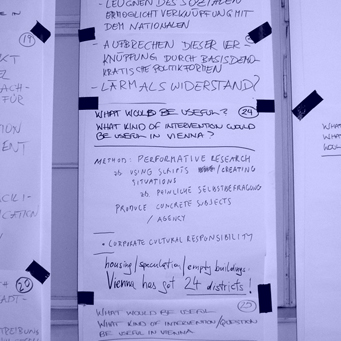 - LEUGNEN DES SOZIALEN
ERMÖGLICHT VERKNÜPFUNG MIT
DEM NATIONALEN
- AUFBRECHEN DIESER VER-
KNÜPFUNG DURCH BASISDEMO-
KRATISCHE POLITIKFORMEN
- LÄRM ALS WIDERSTAND?
WHAT WOULD BE USEFUL? 24
WHAT KIND OF INTERVENTION WOULD
BE USEFUL IN VIENNA?
METHOD: PERFORMATIVE RESEARCH
USING SCRIPTS /CREATING
SITUATIONS
PEINLICHE SELBSTBEFRAGUNG
PRODUCE CONCRETE SUBJECTS
/ AGENCY
• CORPORATE CULTURAL RESPONSIBILITY
housing/speculation/empty buildings.
Vienna has got 24 districts!
25
WHAT WOULD BE USEFUL
WHAT KIND OF INTERVENTION/QUESTION
BE USEFUL IN VIENNA
19
FÜR
20